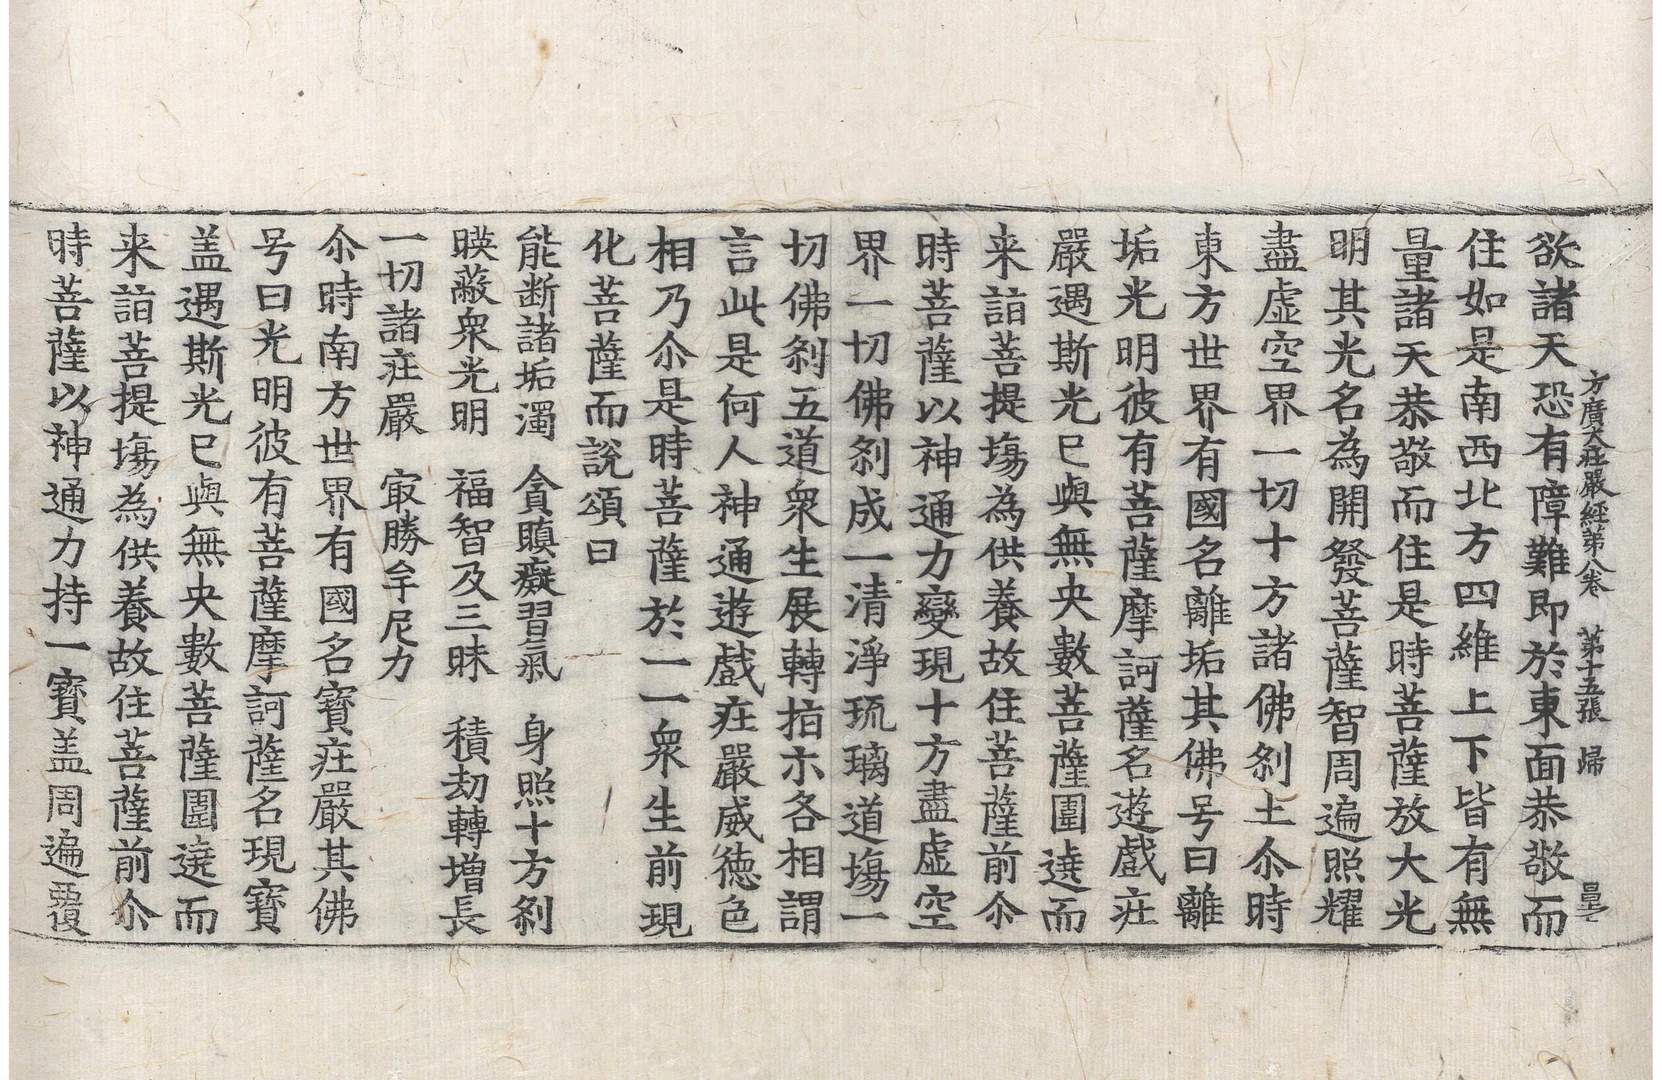 方廣大莊嚴經第八卷 第十五張 歸
欲諸天恐有障難即於東面恭敬而
住如是南西北方四維上下皆有無
量諸天恭敬而住是時菩薩放大光
明其光名為開發菩薩智周遍照耀
盡虛空界一切十方諸佛剎土尒時
東方世界有國名離垢其佛号曰離
垢光明彼有菩薩摩訶薩名遊戲疘
嚴遇斯光已與無央數菩薩圍遶而
来詣菩提塲為供養故住菩薩前尒
時菩薩以神通力變現十方盡虛空
界一切佛剎成一清淨琉璃道塲一
切佛剎五道眾生展轉指示各相謂
言此是何人神通遊戲疘嚴威德色
相乃尒是時菩薩於一一眾生前現
化菩薩而說頌曰
能断諸垢濁 貪瞋癡習氣 身照十方剎
暎蔽眾光明 福智及三昧 積劫轉增長
一切諸疘嚴 㝡勝牟尼力
尒時南方世界有國名寶疘嚴其佛
号曰光明彼有菩薩摩訶薩名現寶
盖遇斯光已與無央數菩薩圍遶而
来詣菩提塲為供養故住菩薩前尒
時菩薩以神通力持一寶盖周遍覆